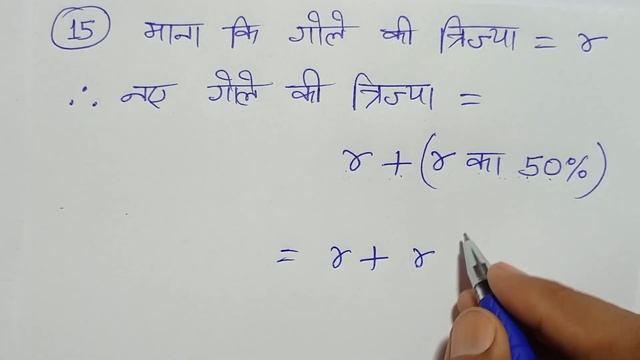 15 माना कि गोले की त्रिज्या = r
∴ नए गोले की त्रिज्या =
r + (r का 50%)
= r + r